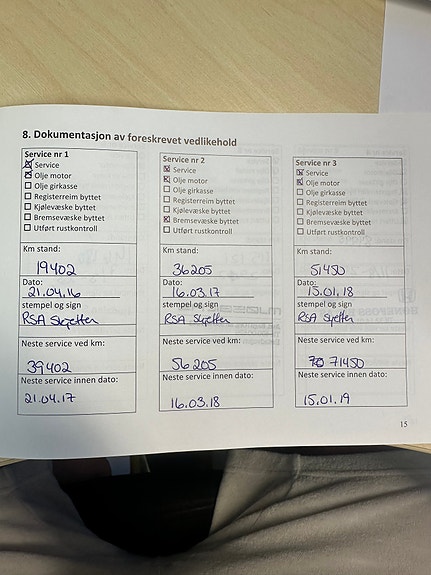 8. Dokumentasjon av foreskrevet vedlikehold
Service nr 1
Service
Olje motor
Olje girkasse
Registerreim byttet
Kjølevæske byttet
Bremsevæske byttet
Utført rustkontroll
Km stand:
19402
Dato:
21.04.16
stempel og sign
RSA Skjetten
Neste service ved km:
39402
Neste service innen dato:
21.04.17
Service nr 2
Service
Olje motor
Olje girkasse
Registerreim byttet
Kjølevæske byttet
Bremsevæske byttet
Utført rustkontroll
Km stand:
36205
Dato:
16.03.17
stempel og sign
RSA Skjetten
Neste service ved km:
56205
Neste service innen dato:
16.03.18
Service nr 3
Service
Olje motor
Olje girkasse
Registerreim byttet
Kjølevæske byttet
Bremsevæske byttet
Utført rustkontroll
Km stand:
51450
Dato:
15.01.18
stempel og sign
RSA Skjetten
Neste service ved km:
71450
Neste service innen dato:
15.01.19
15